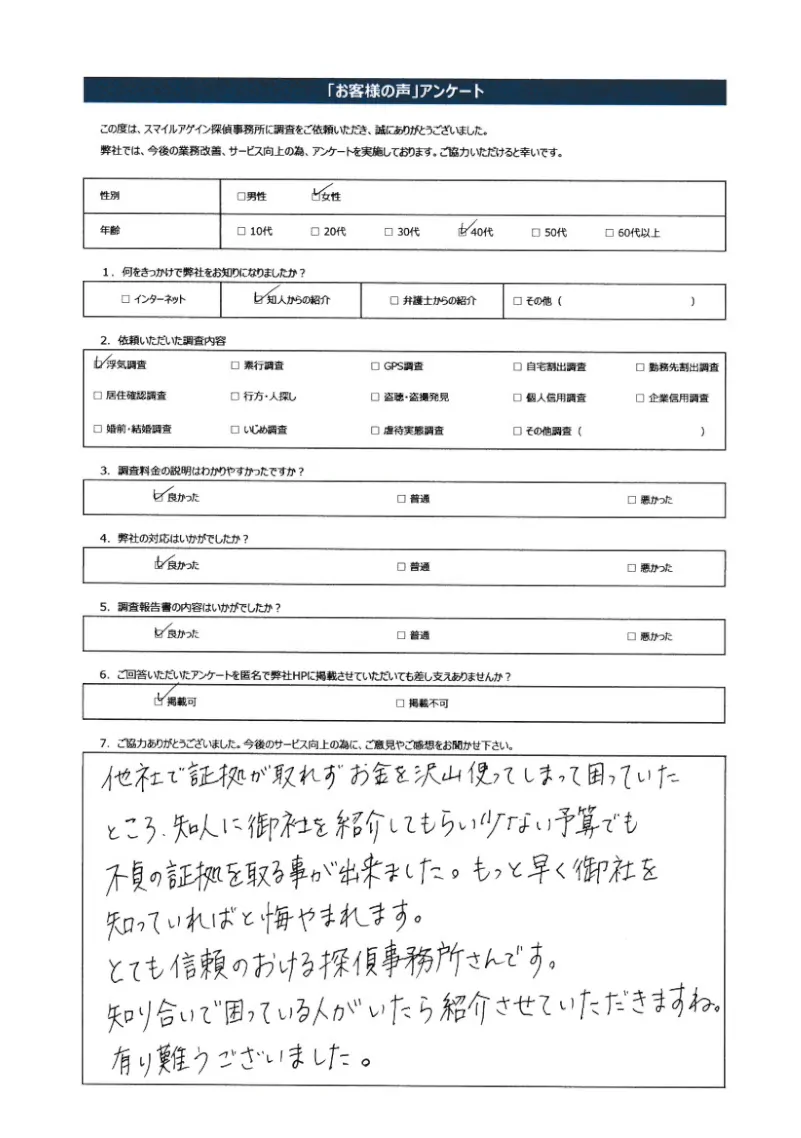 「お客様の声」アンケート
この度は、スマイルアゲイン探偵事務所に調査をご依頼いただき、誠にありがとうございました。
弊社では、今後の業務改善、サービス向上の為、アンケートを実施しております。ご協力いただけると幸いです。
性別 □男性 ☑女性
年齢 □ 10代 □ 20代 □ 30代 ☑ 40代 □ 50代 □ 60代以上
1. 何をきっかけで弊社をお知りになりましたか？
□ インターネット ☑ 知人からの紹介 □ 弁護士からの紹介 □ その他（ ）
2. 依頼いただいた調査内容
☑ 浮気調査 □ 素行調査 □ GPS調査 □ 自宅割出調査 □ 勤務先割出調査
□ 居住確認調査 □ 行方・人探し □ 盗聴・盗撮発見 □ 個人信用調査 □ 企業信用調査
□ 婚前・結婚調査 □ いじめ調査 □ 虐待実態調査 □ その他調査（ ）
3. 調査料金の説明はわかりやすかったですか？
☑ 良かった □ 普通 □ 悪かった
4. 弊社の対応はいかがでしたか？
☑ 良かった □ 普通 □ 悪かった
5. 調査報告書の内容はいかがでしたか？
☑ 良かった □ 普通 □ 悪かった
6. ご回答いただいたアンケートを匿名で弊社HPに掲載させていただいても差し支えありませんか？
☑ 掲載可 □ 掲載不可
7. ご協力ありがとうございました。今後のサービス向上の為に、ご意見やご感想をお聞かせ下さい。
他社で証拠が取れずお金を沢山使ってしまって困っていた
ところ、知人に御社を紹介してもらい少ない予算でも
不貞の証拠を取る事が出来ました。もっと早く御社を
知っていればと悔やまれます。
とても信頼のおける探偵事務所さんです。
知り合いで困っている人がいたら紹介させていただきますね。
有り難うございました。